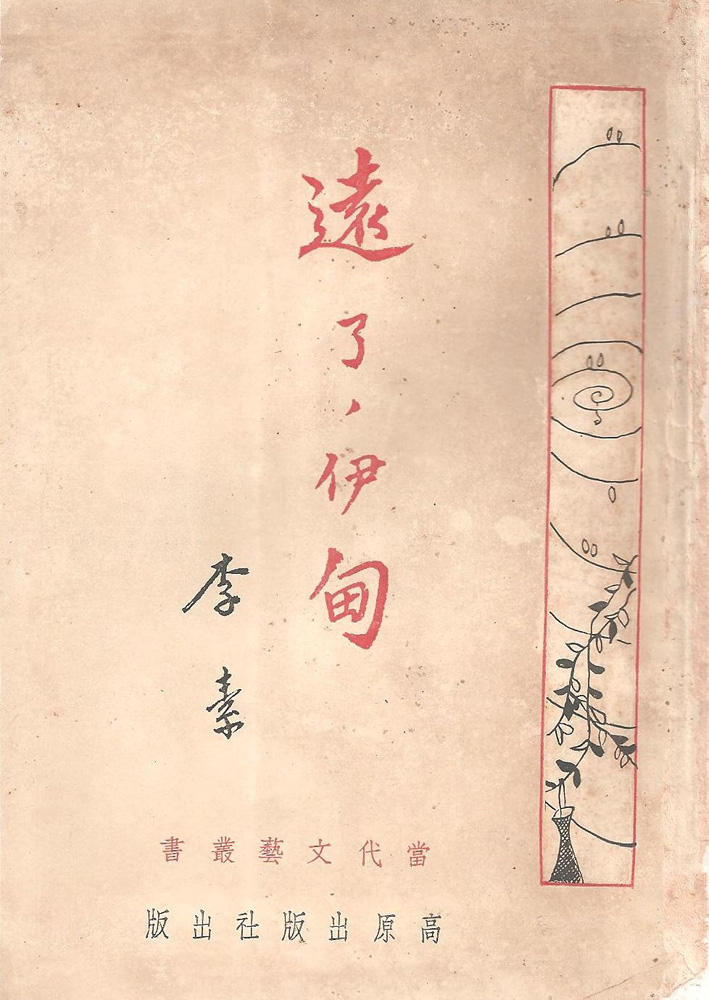 遠了，伊甸
李素
當代文藝叢書
高原出版社出版